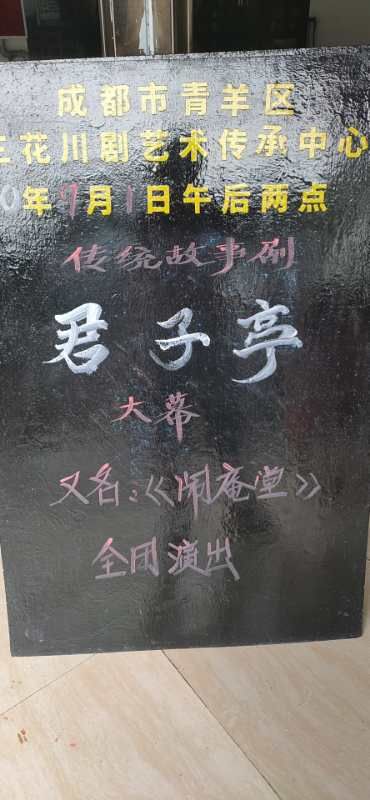 成都市青羊区
兰花川剧艺术传承中心
0年7月1日午后两点
传统故事剧
君子亭
大幕
又名:《闹庵堂》
全团演出